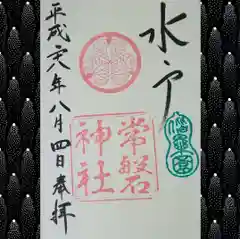 水戸
常磐
神社
平成二十八年八月四日奉拝